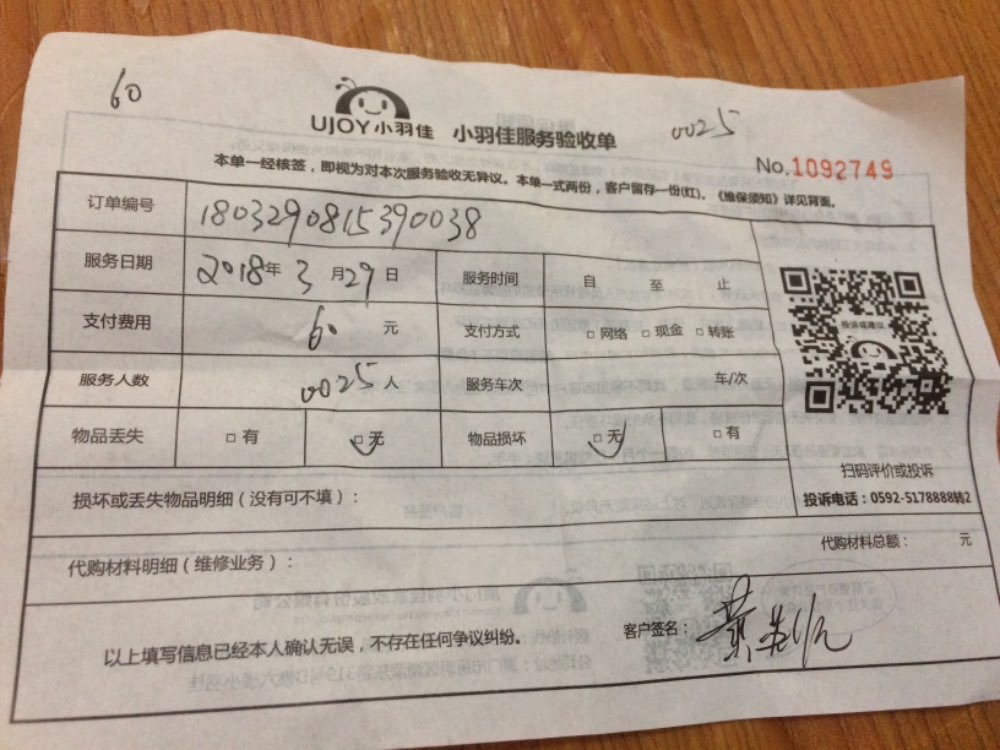 60
UJOY小羽佳 小羽佳服务验收单 0025
本单一经核签，即视为对本次服务验收无异议。本单一式两份，客户留存一份(红)。《维保须知》详见背面。
No.1092749
订单编号 1803290815390038
服务日期 2018年3月29日 服务时间 自 至 止
支付费用 60 元 支付方式 □网络 □现金 □转账
服务人数 0025人 服务车次 车/次
物品丢失 □有 □无 物品损坏 □无 □有
投诉或建议
扫码评价或投诉
投诉电话：0592-5178888转2
损坏或丢失物品明细（没有可不填）：
代购材料明细（维修业务）： 代购材料总额： 元
以上填写信息已经本人确认无误，不存在任何争议纠纷。 客户签名：黄